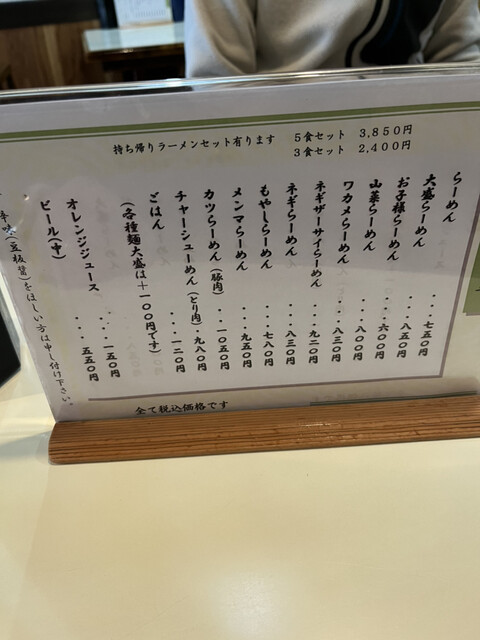 持ち帰りラーメンセット有ります 5食セット 3,850円
3食セット 2,400円
らーめん ・・・七五〇円
大盛らーめん ・・・八五〇円
お子様らーめん ・・・六〇〇円
山菜らーめん ・・・八〇〇円
ワカメらーめん ・・・八三〇円
ネギザーサイらーめん ・・・九二〇円
ネギらーめん ・・・八三〇円
もやしらーめん ・・・七八〇円
メンマらーめん ・・・九五〇円
カツらーめん(豚肉) ・・・一〇五〇円
チャーシューめん(とり肉) 九八〇円
ごはん ・・・一二〇円
(各種麺大盛は+一〇〇円です)
オレンジジュース ・・・一五〇円
ビール(中) ・・・五五〇円
辛味(豆板醤)をほしい方は申し付け下さい。
全て税込価格です